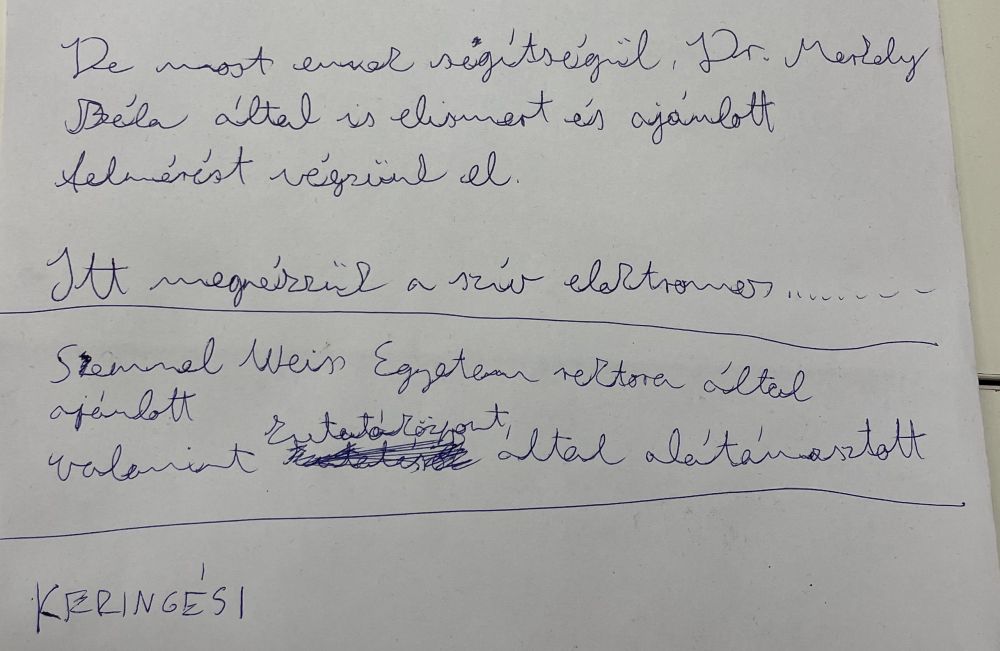 De most ennek ségítségül, Dr. Merkely
Béla által is elismert és ajánlott
felmérést végzünk el.
Itt megnézzük a szív elektromos..........
Semmel Weiss Egyetem rektora által
ajánlott
valamint kutatóközpont, által alátámasztott
KERINGÉSI